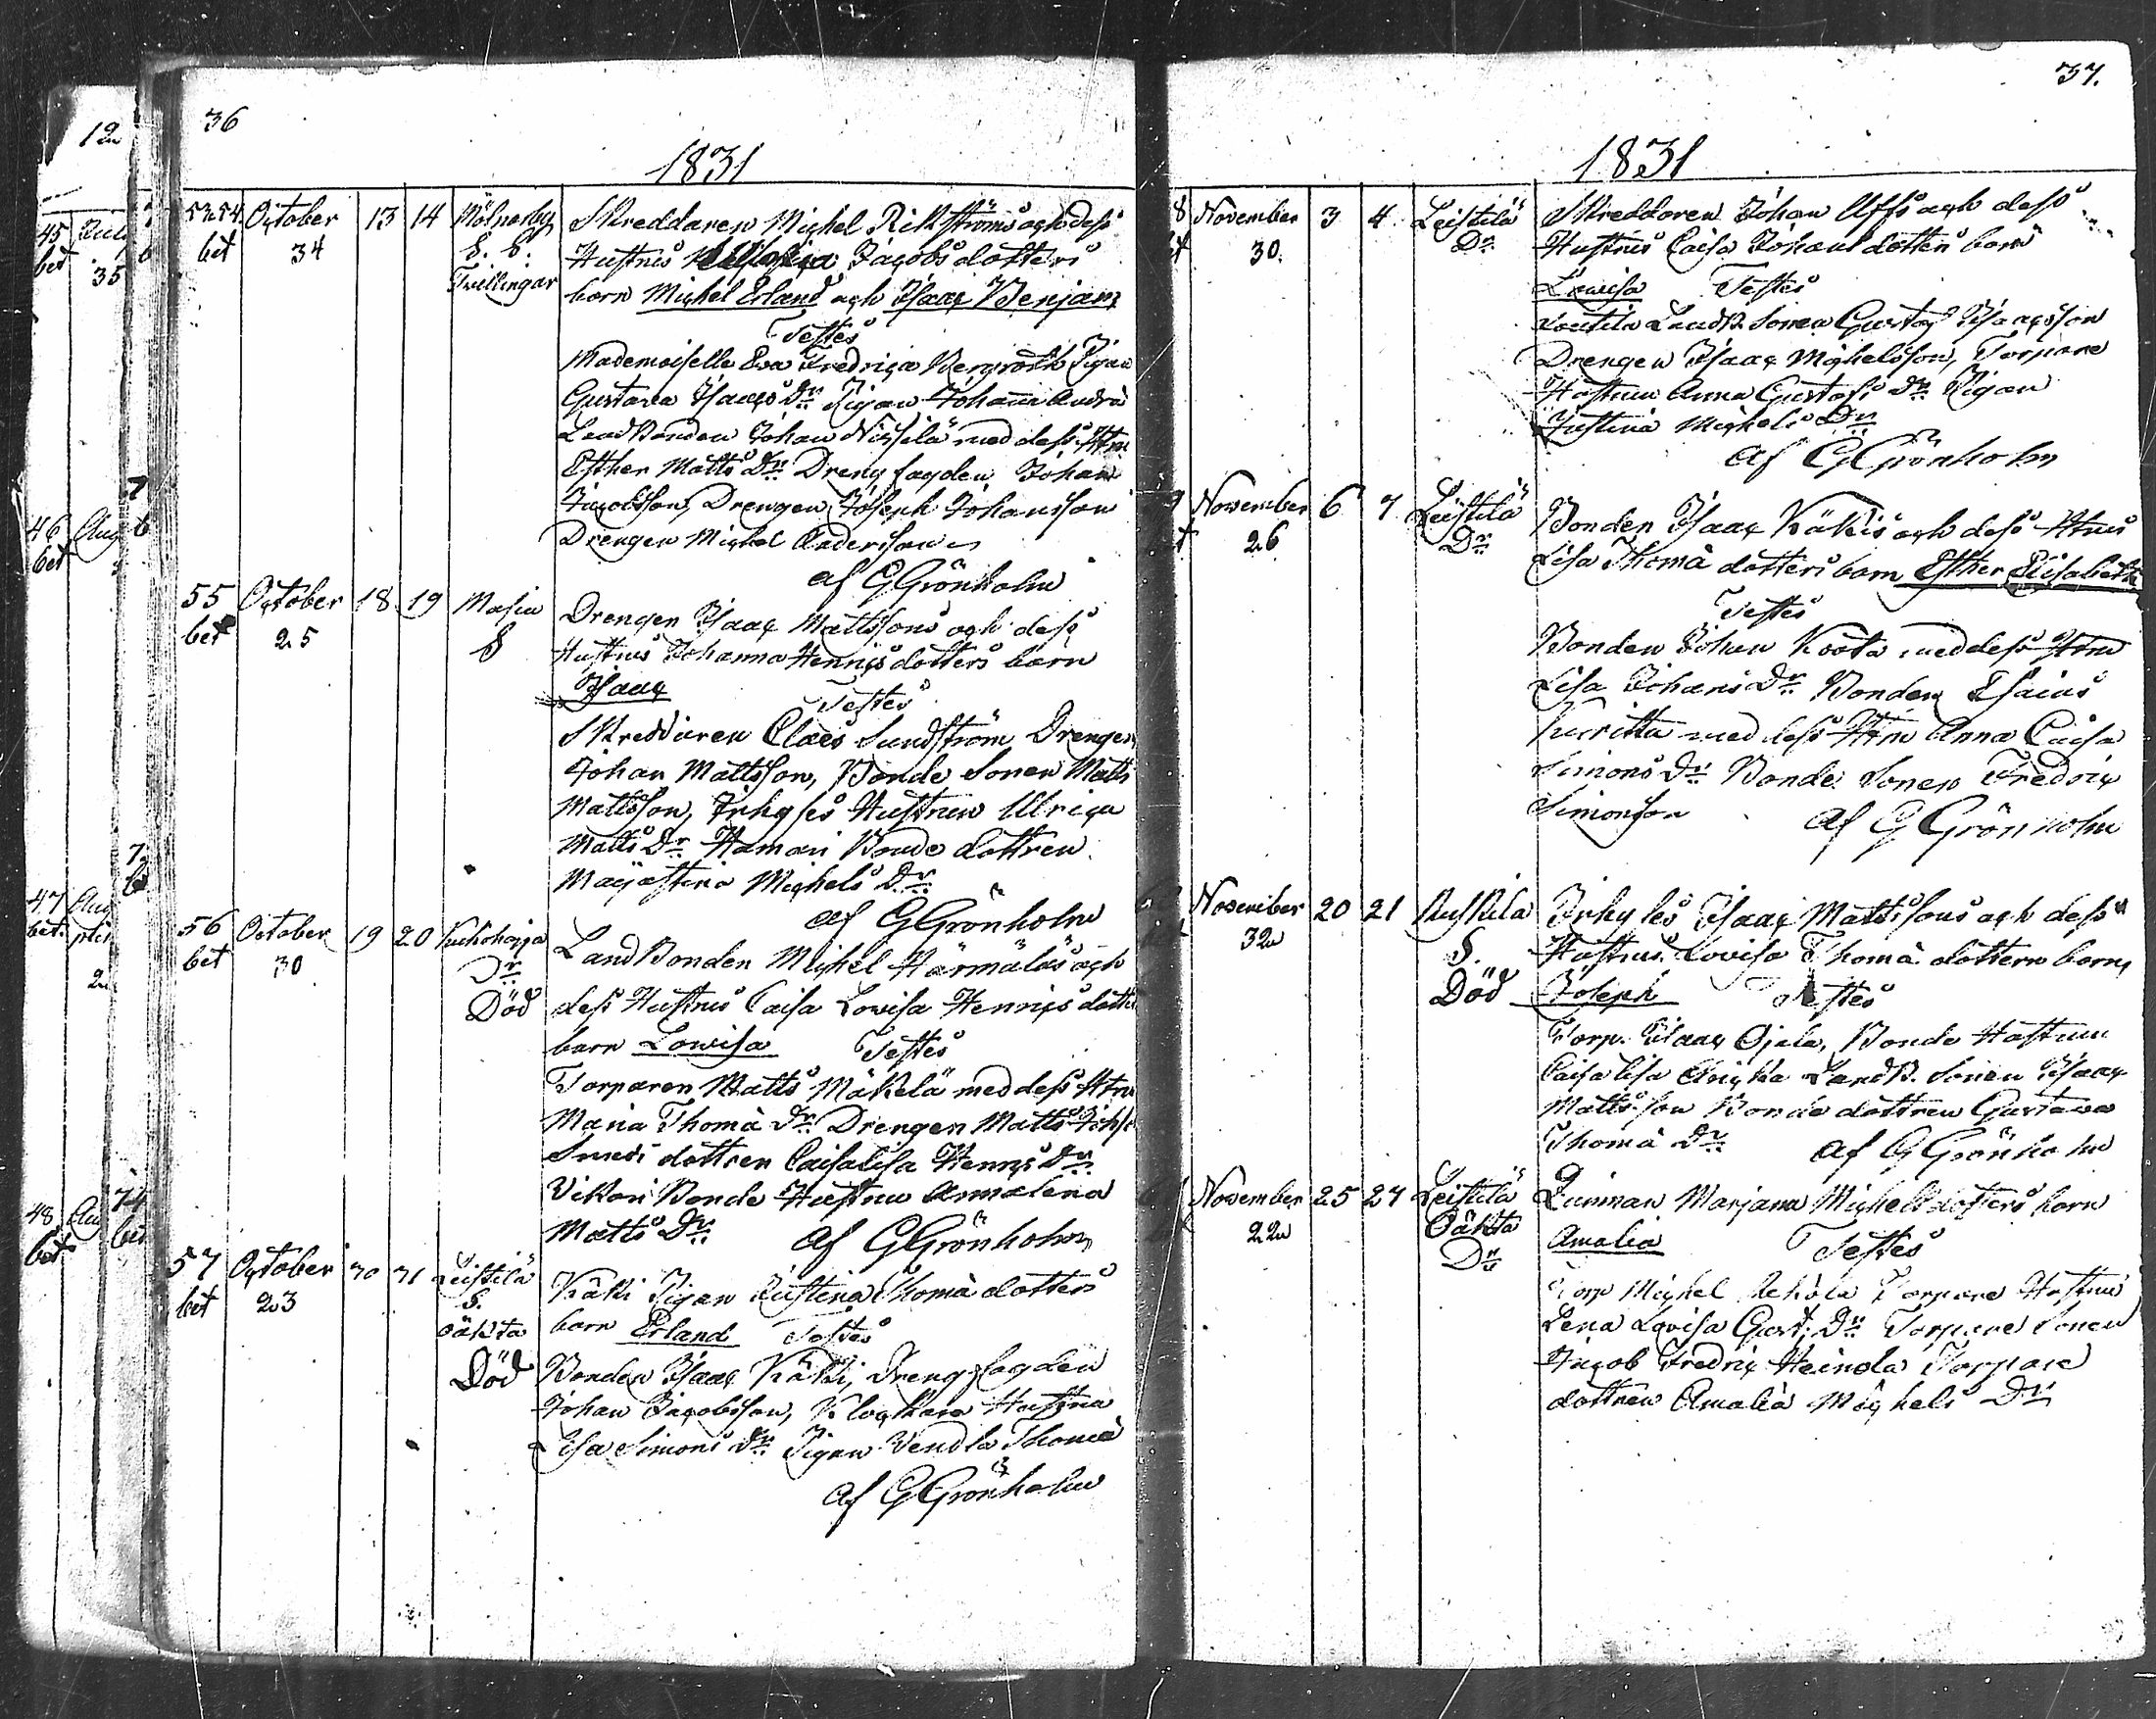 36
1831
53.54. October 13 14 Mölnarby Skreddaren Michel Rikströms och dess
bet 34 S. S. Hustrus Jacobs dotters
Tvillingar barn Michel Erland och Isaac Benjam
Testes
Mademoiselle Eva Fredrica Bergroth Pigan
Gustava Isaacs Dr Pigan Johanna Andrs
Landbonden Johan Nissilä med dess Htru
Esther Matts Dr Dreng fagden Johan
Jacobsson, Drengen Joseph Johansson
Drengen Michel Andersson
af G Grönholm
55 October 18 19 Masia Drengen Isaac Mattssons och dess
bet 25 S Hustrus Johanna Henrics dotters barn
Isaac Testes
Skreddaren Claes Sundström Drengen
Johan Mattsson, Bonde Sonen Matts
Mattsson, Inhyses Hustrun Ulrica
Matts Dr Hamari Bonde dottren
Majastina Michels Dr
af G Grönholm
56 October 19 20 Kuchoharja Landbonden Michel Härmäläs och
bet 30 Dr
Död dess Hustrus Caisa Lovisa Henrics dotters
barn Lowisa Testes
Torparen Matts Mäkelä med dess Htru
Maria Thomä Dr Drengen Matts Johss
Smeds dottren Caisalisa Henrics Dr
Vikari Bonde Hustrun Annalena
Matts Dr af G Grönholm
57 October 30 31 Leistilä Käki Pigan Justina Thomä dotters
bet 23 S. oäkta barn Erland Testes
Död Bonden Isaac Käki, Drengfagden
Johan Jacobsson, Klockare Hustrun
Lisa Simons Dr Pigan Vendla Thomä
af G Grönholm
37.
1831
8 November 3 4 Leistilä Skreddaren Johan Uffs och dess
30. Dr Hustrus Caisa Johans dotters barn
Lowisa Testes
LandB. Sonen Gustaf Isaacsson
Drengen Isaac Michelsson, Torpare
Hustrun Anna Gustafs Dr Pigan
Justina Michels Dr
af G Grönholm
9 November 6 7 Leistilä Bonden Isaac Käkis och dess Htrus
26 Dr Lisa Thomä dotters barn Esther Elisabeth
Testes
Bonden Johan Knota med dess Htru
Lisa Johans Dr Bonden Esaias
Jurikka med dess Htru Anna Caisa
Simons Dr Bonde Sonen Fredric
Simonsson af G Grönholm
November 20 21 Ruskila Inhyses Isaac Mattssons och dess
32 S. Hustrus Lovisa Thomä dotters barn
Död Joseph Testes
Torp. Isaac Ojala, Bonde Hustrun
Caisa Lisa LandB. Sonen Isaac
Mattsson Bonde dottren Gustava
Thomä Dr af G Grönholm
November 25 27 Leistilä Qvinnan Marjana Michels dotters barn
22 Oäkta Amalia Testes
Dr
Torp Michel Torpare Hustrun
Lena Lovisa Gust. Dr Torpare Sonen
Jacob Fredric Heinola Torpare
dottren Amalia Michels Dr
12
45 Juli
bet 35
46 Aug
bet
47 Aug
bet.
48 Au
bet